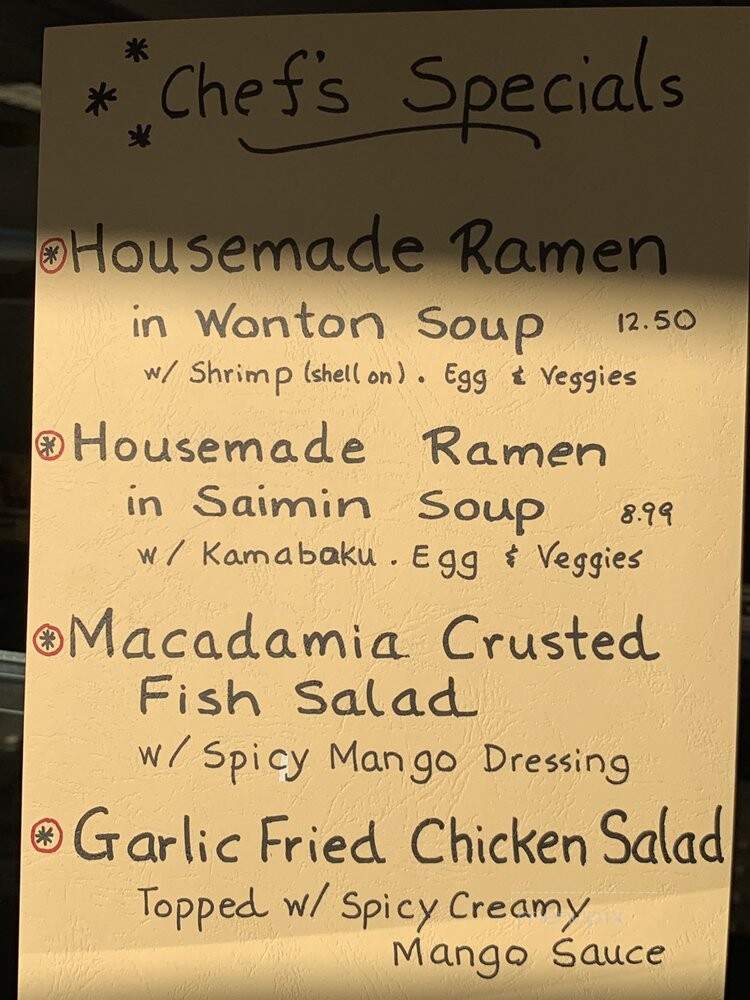 Chef's Specials
Housemade Ramen
in Wonton Soup 12.50
w/ Shrimp (shell on). Egg & Veggies
Housemade Ramen
in Saimin Soup 8.99
w/ Kamabaku. Egg & Veggies
Macadamia Crusted
Fish Salad
w/ Spicy Mango Dressing
Garlic Fried Chicken Salad
Topped w/ Spicy Creamy
Mango Sauce